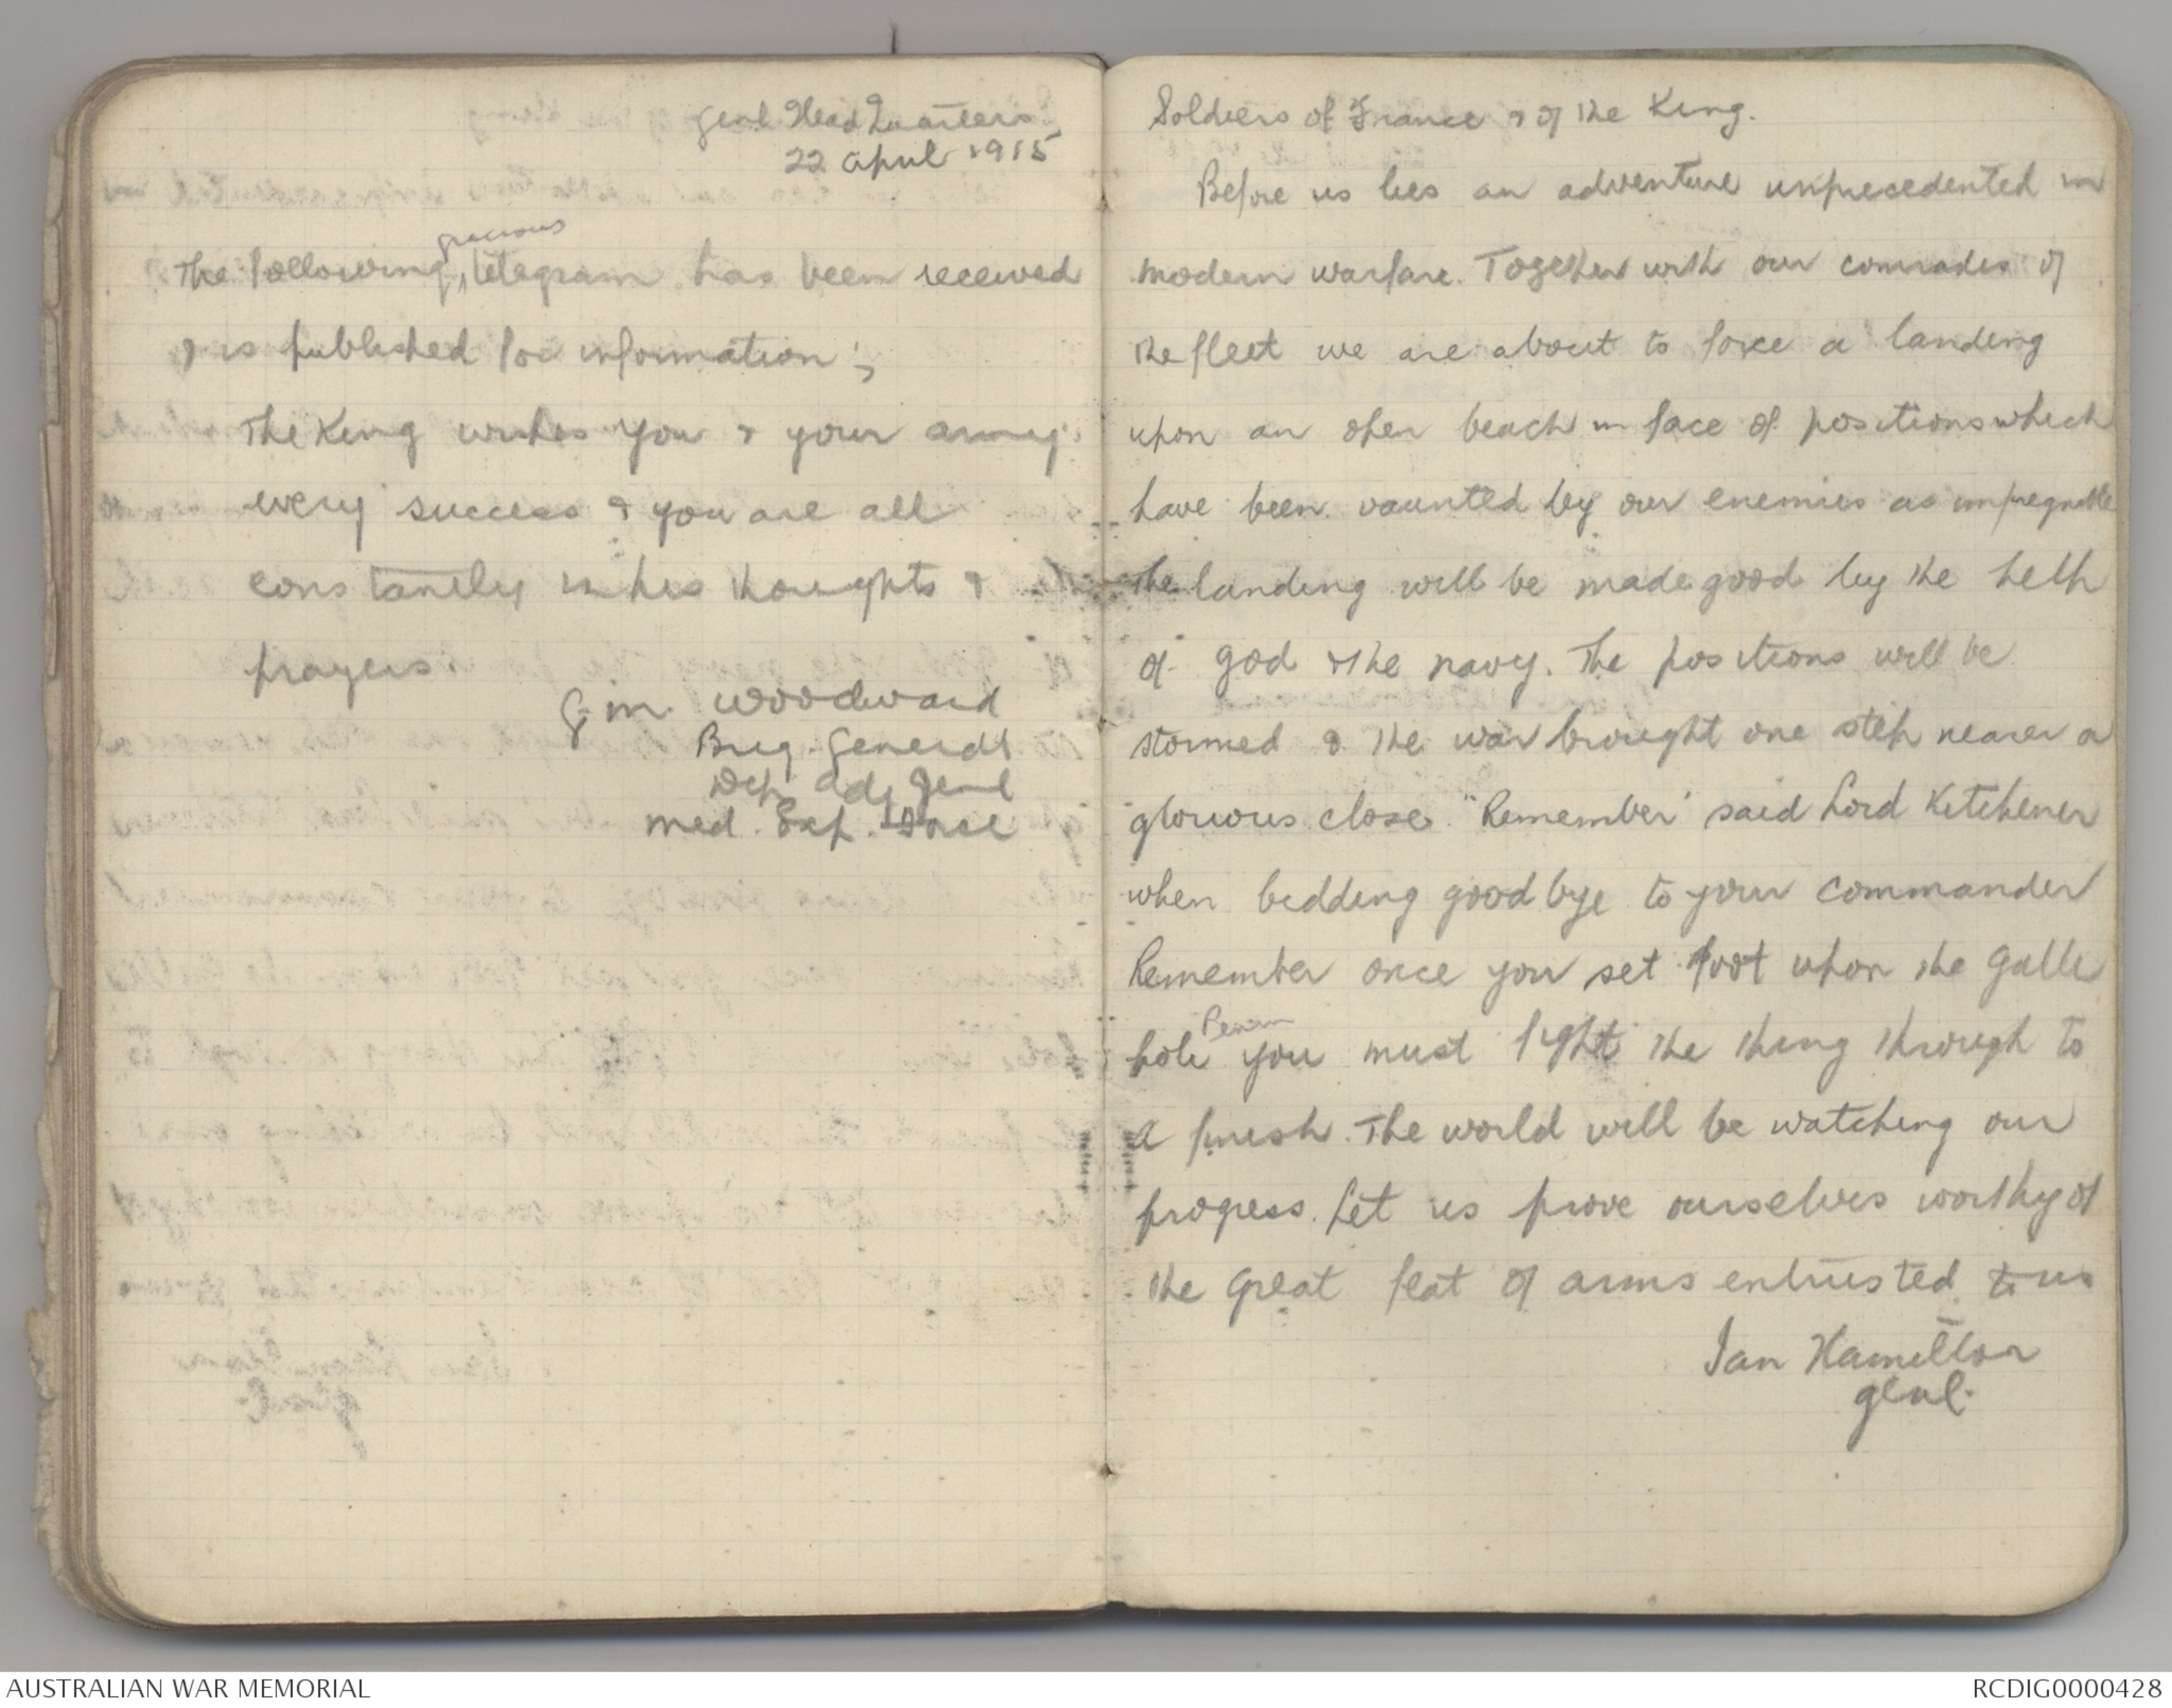 Genl Head Quarters
22 April 1915
The following gracious telegram has been received
& is published for information;
The King wishes you & your army
every success & you are all
constantly in his thoughts &
prayers.
E.M. Woodward
Brig. General
Dep Adj Genl
Med. Exp. Force
Soldiers of France & of the King.
Before us lies an adventure unprecedented in
modern warfare. Together with our comrades of
the fleet we are about to force a landing
upon an open beach in face of positions which
have been vaunted by our enemies as impregnable
The landing will be made good by the help
of God & the Navy. The positions will be
stormed & the war brought one step nearer a
glorious close. "Remember" said Lord Kitchener
when bidding good bye to your commander
Remember once you set foot upon the Galli
poli Penin you must fight the thing through to
a finish. The world will be watching our
progress. Let us prove ourselves worthy of
the great feat of arms entrusted to us
Ian Hamilton
Genl.
AUSTRALIAN WAR MEMORIAL
RCDIG0000428